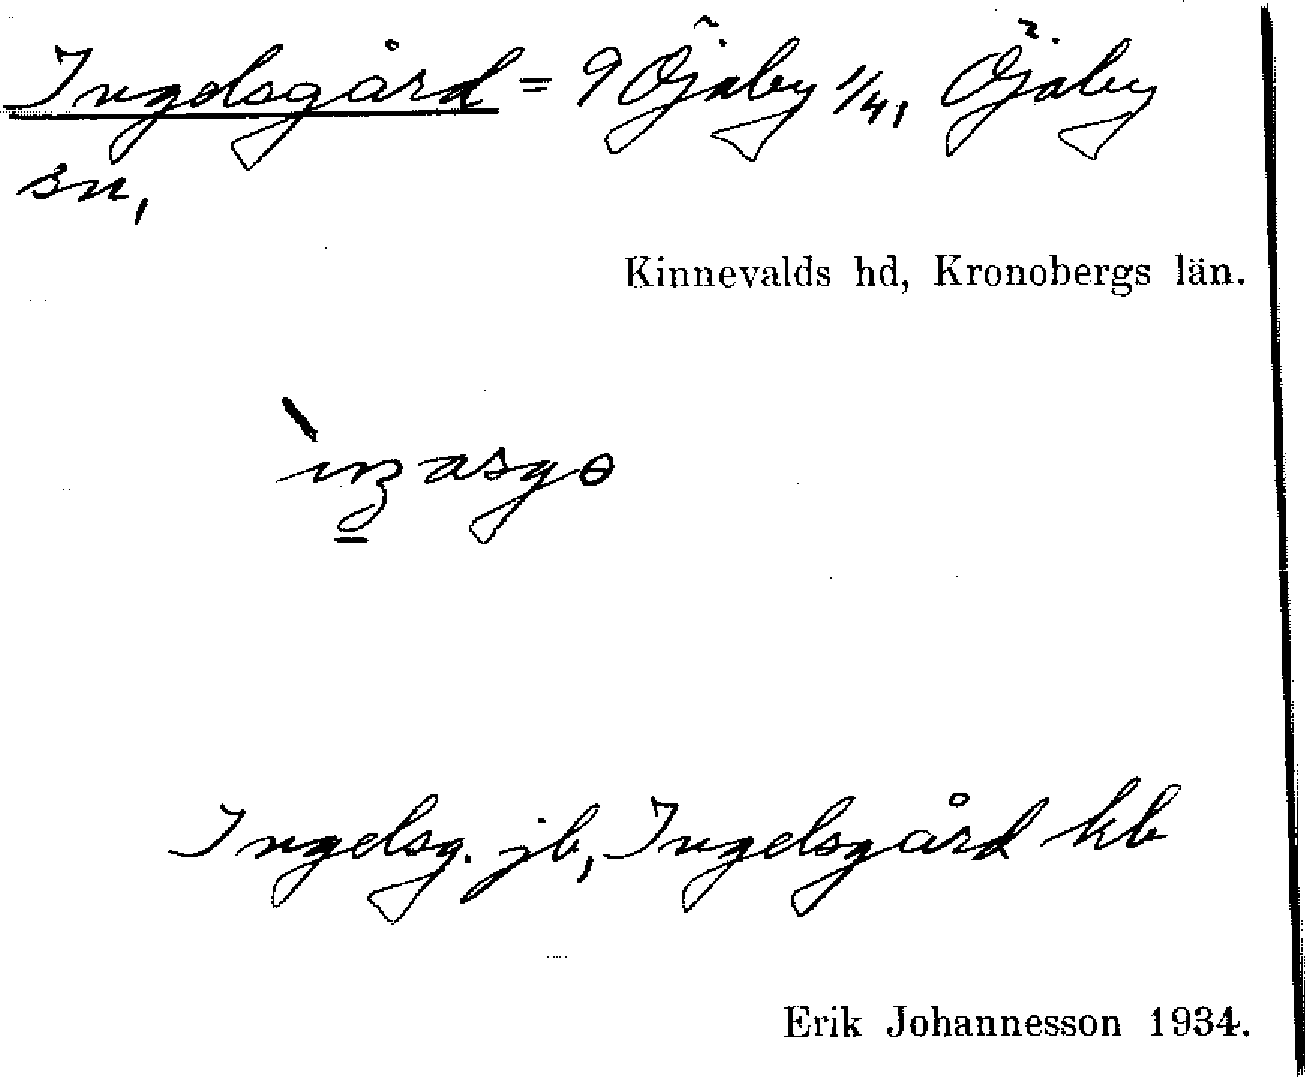 Ingelsgård = 9 Öjaby 1/4, Öjaby
sn,
Kinnevalds hd, Kronobergs län.
Ingelsg. jb, Ingelsgård kb
Erik Johannesson 1934.